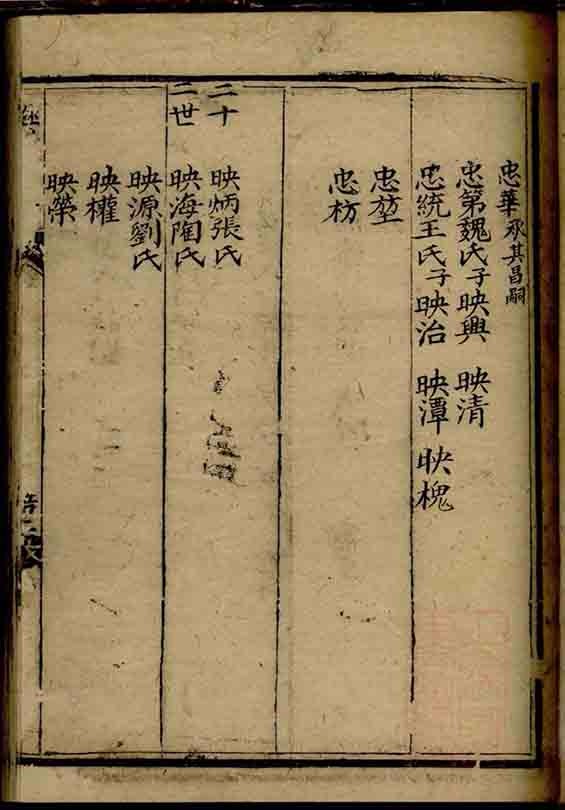 忠華承其昌嗣
忠第魏氏子映興 映清
忠統王氏子映治 映潭 映槐
忠堃
忠枋
二十二世
映炳張氏
映海陶氏
映源劉氏
映權
映榮